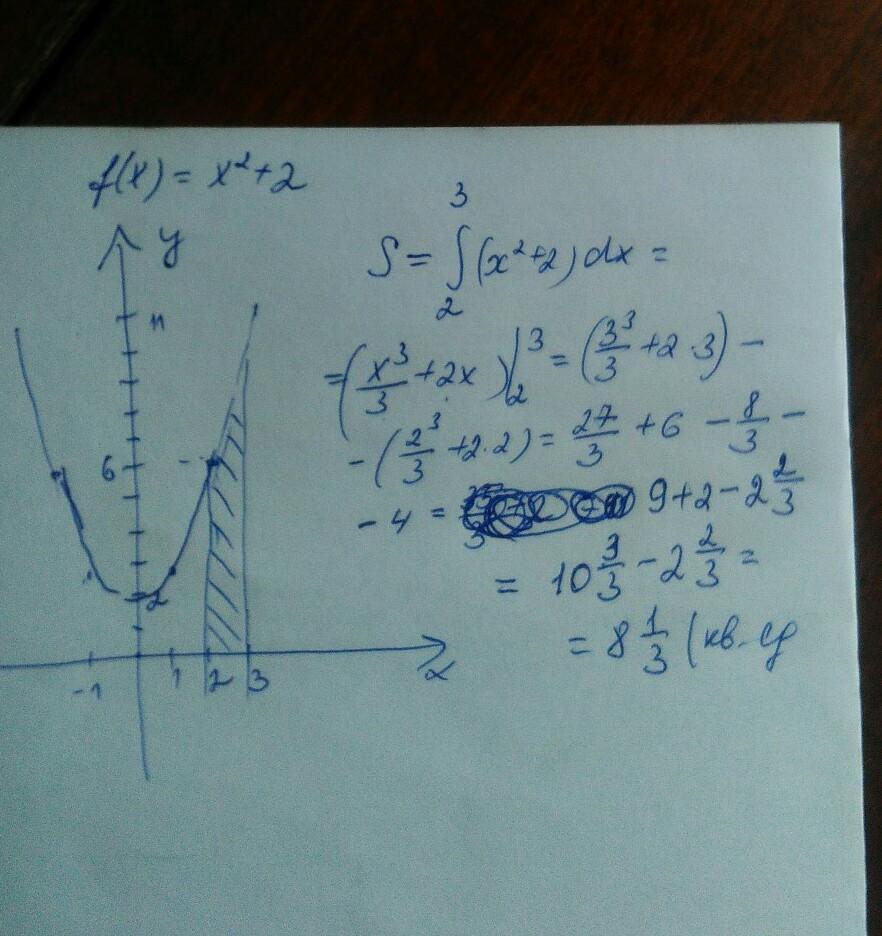 f(x) = x²+2
y
11
6
2
-1 1 2 3 x
S = ∫₂³ (x²+2) dx =
= (x³/3 + 2x) |₂³ = (3³/3 + 2·3) –
– (2³/3 + 2·2) = 27/3 + 6 – 8/3 –
– 4 = 9+2–2 2/3
= 10 3/3 – 2 2/3 =
= 8 1/3 (кв. ед